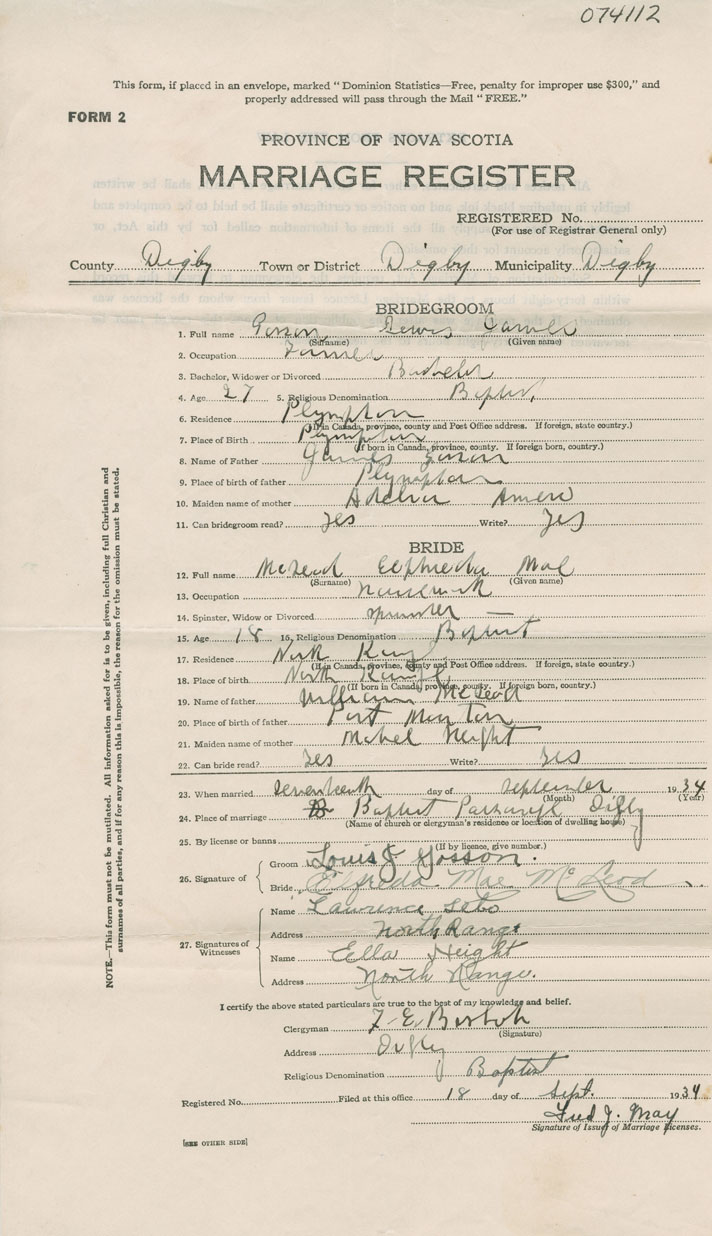 074112
This form, if placed in an envelope, marked "Dominion Statistics—Free, penalty for improper use $300," and
properly addressed will pass through the Mail "FREE."
FORM 2
PROVINCE OF NOVA SCOTIA
MARRIAGE REGISTER
REGISTERED No.
(For use of Registrar General only)
County Digby Town or District Digby Municipality Digby
BRIDEGROOM
1. Full name Lewis James
(Surname) (Given name)
2. Occupation Farmer
3. Bachelor, Widower or Divorced Bachelor
4. Age 27 5. Religious Denomination Baptist
6. Residence Plympton
(If in Canada, province, county and Post Office address. If foreign, state country.)
7. Place of Birth Plympton
(If born in Canada, province, county. If foreign born, country.)
8. Name of Father James
9. Place of birth of father Plympton
10. Maiden name of mother
11. Can bridegroom read? Yes Write? Yes
BRIDE
12. Full name McLeod Mae
(Surname) (Given name)
13. Occupation Housework
14. Spinster, Widow or Divorced spinster
15. Age 18 16. Religious Denomination Baptist
17. Residence North Range
(If in Canada, province, county and Post Office address. If foreign, state country.)
18. Place of birth North Range
(If born in Canada, province, county. If foreign born, country.)
19. Name of father William McLeod
20. Place of birth of father Port
21. Maiden name of mother Mabel Height
22. Can bride read? Yes Write? Yes
23. When married seventeenth day of September 1934
(Month) (Year)
24. Place of marriage Baptist Parsonage Digby
(Name of church or clergyman's residence or location of dwelling house)
25. By license or banns
(If by licence, give number.)
26. Signature of
Groom Louis J Gosson.
Bride Elfreda Mae McLeod
27. Signatures of Witnesses
Name Laurence Sebo
Address North Range
Name Ella Height
Address North Range.
I certify the above stated particulars are true to the best of my knowledge and belief.
Clergyman F. E.
(Signature)
Address Digby
Religious Denomination Baptist
Registered No. Filed at this office 18 day of Sept. 1934
Fred J. May
Signature of Issuer of Marriage Licenses.
[SEE OTHER SIDE]
NOTE.—This form must not be mutilated. All information asked for is to be given, including full Christian and
surnames of all parties, and if for any reason this is impossible, the reason for the omission must be stated.